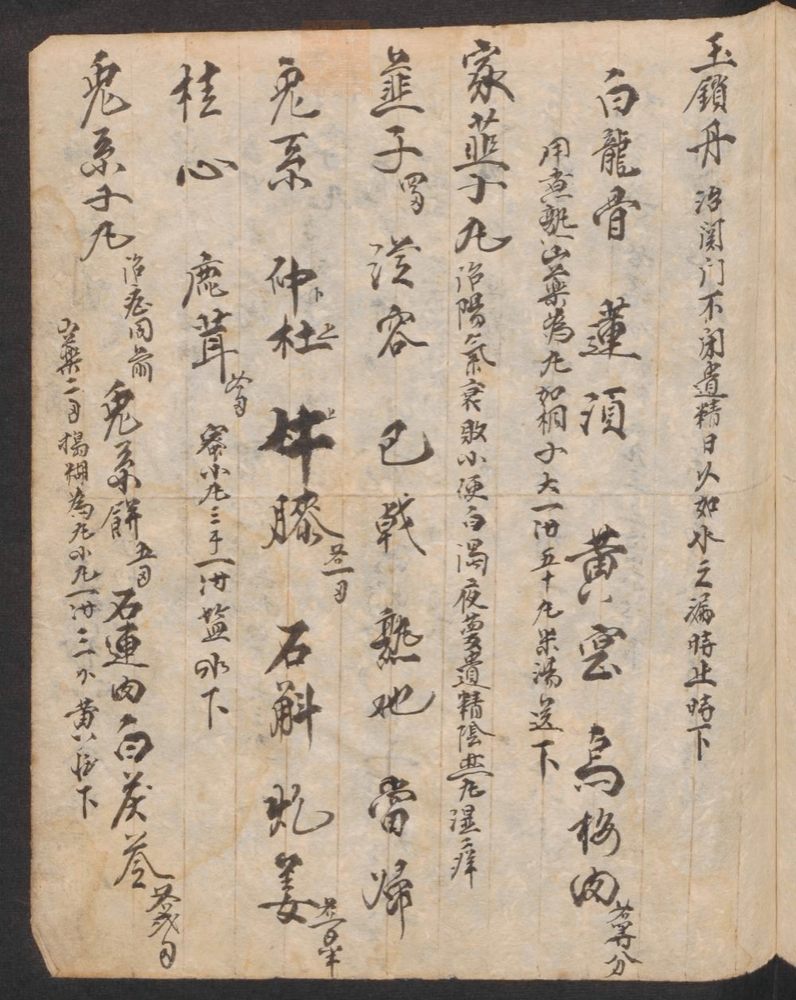 玉鎖丹 治関门不闭遺精日久如水之漏時止時下
白龍骨 蓮須 黄 烏梅肉 各等分
用煮熟山藥為丸如桐子大一汁五十丸米湯送下
家韮子丸 治陽氣衰敗小便白濁夜夢遺精陰 湿痒
韮子 从容 巴戟 熟地 當歸
兎系 仲杜 牛膝 各一 石斛 炮姜
桂心 鹿茸 蜜小丸三十一汁盐水下
兎系子丸 治症同前 兎系餅 五 石連肉 白茯苓
山藥二 糊為丸小丸一汁三 黄 下